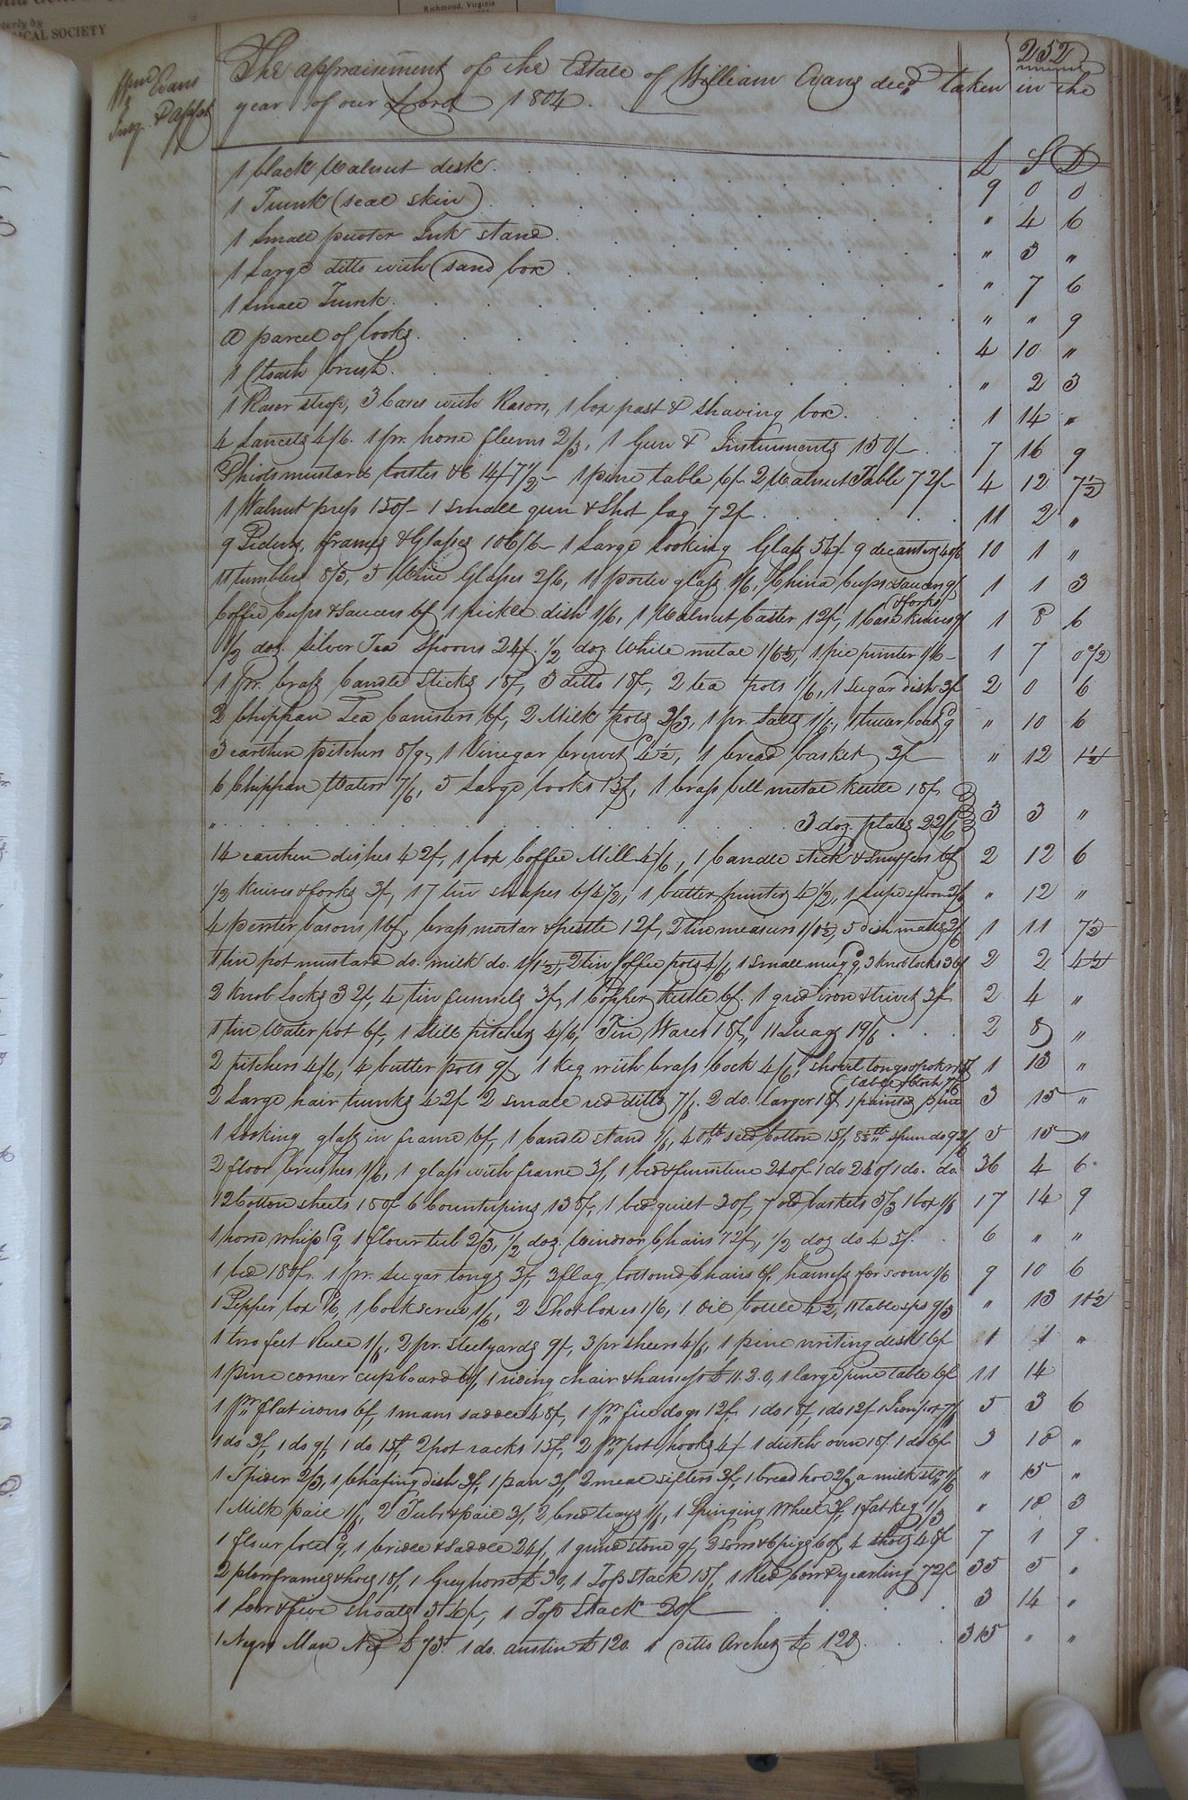 Richmond, Virginia
SOCIETY
252
Wm Evans
The appraisement of the Estate of William Evans decd taken in the
year of our Lord 1804.
£ S D
1 black Walnut desk 9 0 0
1 Trunk (seal skin) " 4 6
1 Small pewter Ink stand " 3 "
1 Large ditto with sand box " 7 6
1 Small Trunk " " 9
A parcel of books 4 10 "
1 brush " 2 3
1 Razor strop, 3 Cases with Razors, 1 box past & shaving box 1 14 "
4 Lancets 4/6. 1 pr. horse fleems 2/3, 1 Gun & Instruments 150/ 7 16 9
mustard & 14/7½ 1 pine table 6/ 2 Walnut Table 72/ 4 12 7½
1 Walnut press 150/ 1 small gun & shot bag 72/ 11 2 "
9 frames & Glasses 106/6 1 Large looking Glass 54/ 9 decanters 10 1 "
11 tumblers 5 Wine Glasses 2/6, 11 porter glass 1/6, China Cups & Saucers 9/ 1 1 3
& forks
Coffee Cups & Saucers 6/ 1 pickle dish 1/6, 1 Walnut Caster 12/, 1 Case Knives 9/ 1 8 6
1/2 doz. Silver Tea Spoons 24/ ½ doz White metal 1 1/6 1 7 0½
1 pr. brass Candle Sticks 18/, 3 ditto 18/, 2 tea pots 1/6, 1 Sugar dish 3/ 2 0 6
2 Tea Canisters 6/, 2 Milk pots 1 pr. Salts 1/6, " 10 6
3 earthen pitchers 1 Vinegar 4½, 1 bread basket 3/ " 12 1½
6 Waters 7/6, 5 Large books 15/, 1 brass bell metal kettle 18/
3 doz. plates 22/6 3 3 "
14 earthen dishes 42/, 1 box Coffee Mill 4/6, 1 Candle stick & Snuffers 6/ 2 12 6
½ Knives & forks 3/, 17 tin shapes 6/4½, 1 butter printer 4½, 1 " 12 "
4 pewter basons 16/, brass mortar & pestle 12/, 2 tin measures 5 dish matts 1 11 7½
1 tin pot mustard do. milk do. 2 tin Coffee pots 4/6, 1 Small mug 9, 3 knob locks 36/ 2 2 4½
2 Knob Locks 32/, 4 tin funnels 3/, 1 Copper kettle 6/. 1 grid iron & trivet 3/ 2 4 "
1 tin Water pot 6/, 1 Still pitcher 4/6, Tin Wares 18/, 11 Juggs 19/6 2 8 "
2 pitchers 4/6, 4 butter pots 9/, 1 keg with brass Cock 4/6, shovel tongs & poker 1 13 "
table
2 Large hair trunks 42/ 2 small red ditto 7/. 2 do. larger 18/ 1 painted pine 3 15 "
1 Looking glass in frame 6/, 1 Candle stand 1/6, 40 lb seed Cotton 15/, spun do 5 15 "
2 floor brushes 1/6, 1 glass with frame 3/, 1 bed & furniture 240/ 1 do 240/ 1 do. do 36 4 6
12 Cotton sheets 150/ 6 Counterpins 135/, 1 bed quilt 30/, 7 old baskets 1 box 1/6 17 14 9
1 horse whip 9, 1 flour tub 2/3, ½ doz. Windsor Chairs 72/, ½ doz do 45/ 6 " "
1 bed 180/ 1 pr. Sugar tongs 3/, 3 flag bottomed Chairs 6/, harness for 1/6 9 10 6
1 Pepper box 1 Cock screw 1/6, 2 Shot boxes 1/6, 1 Oil bottle 4½, 11 table 9/3 " 13 10½
1 two feet Rule 1/6, 2 pr. steelyards 9/, 3 pr sheers 4/6, 1 pine writing desk 6/ 1 1 "
1 pine corner cupboard 6/, 1 riding chair & harness £11.2.0, 1 large pine table 6/ 11 14
1 pr flat irons 6/, 1 mans saddle 48/, 1 pr fire dogs 12/ 1 do 18/, 1 do 12/ 1 Iron pot 7/6 5 3 6
1 do 3/, 1 do 9/, 1 do 15/, 2 pot racks 15/, 2 pr pot hooks 4/ 1 dutch oven 18/ 1 do 6/ 3 10 "
1 Spider 2/3, 1 Chafing dish 3/, 1 pan 3/, 2 meal sifters 3/, 1 bread hoe 2/3 a milk " 15 "
1 Milk pail 1/6, 2 Tubs & pail 3/, 2 bread trays 1/6, 1 Spinging Wheel 3/, 1 fat keg 1/3 " 10 3
1 flour 9, 1 bridle & saddle 24/, 1 grind stone 9/, 2 sows & 6 pigs 60/, 4 shoats 48/ 7 1 9
2 plow frames & hoes 18/, 1 Grey horse £30, 1 Top Stack 15/, 1 Red Cow & yearling 72/ 35 5 "
1 Sow & five shoats 54/, 1 Top Stack 20/ 3 14 "
1 Negro Man £75. 1 do. austin £120. 1 ditto Archer £120. 315 " "